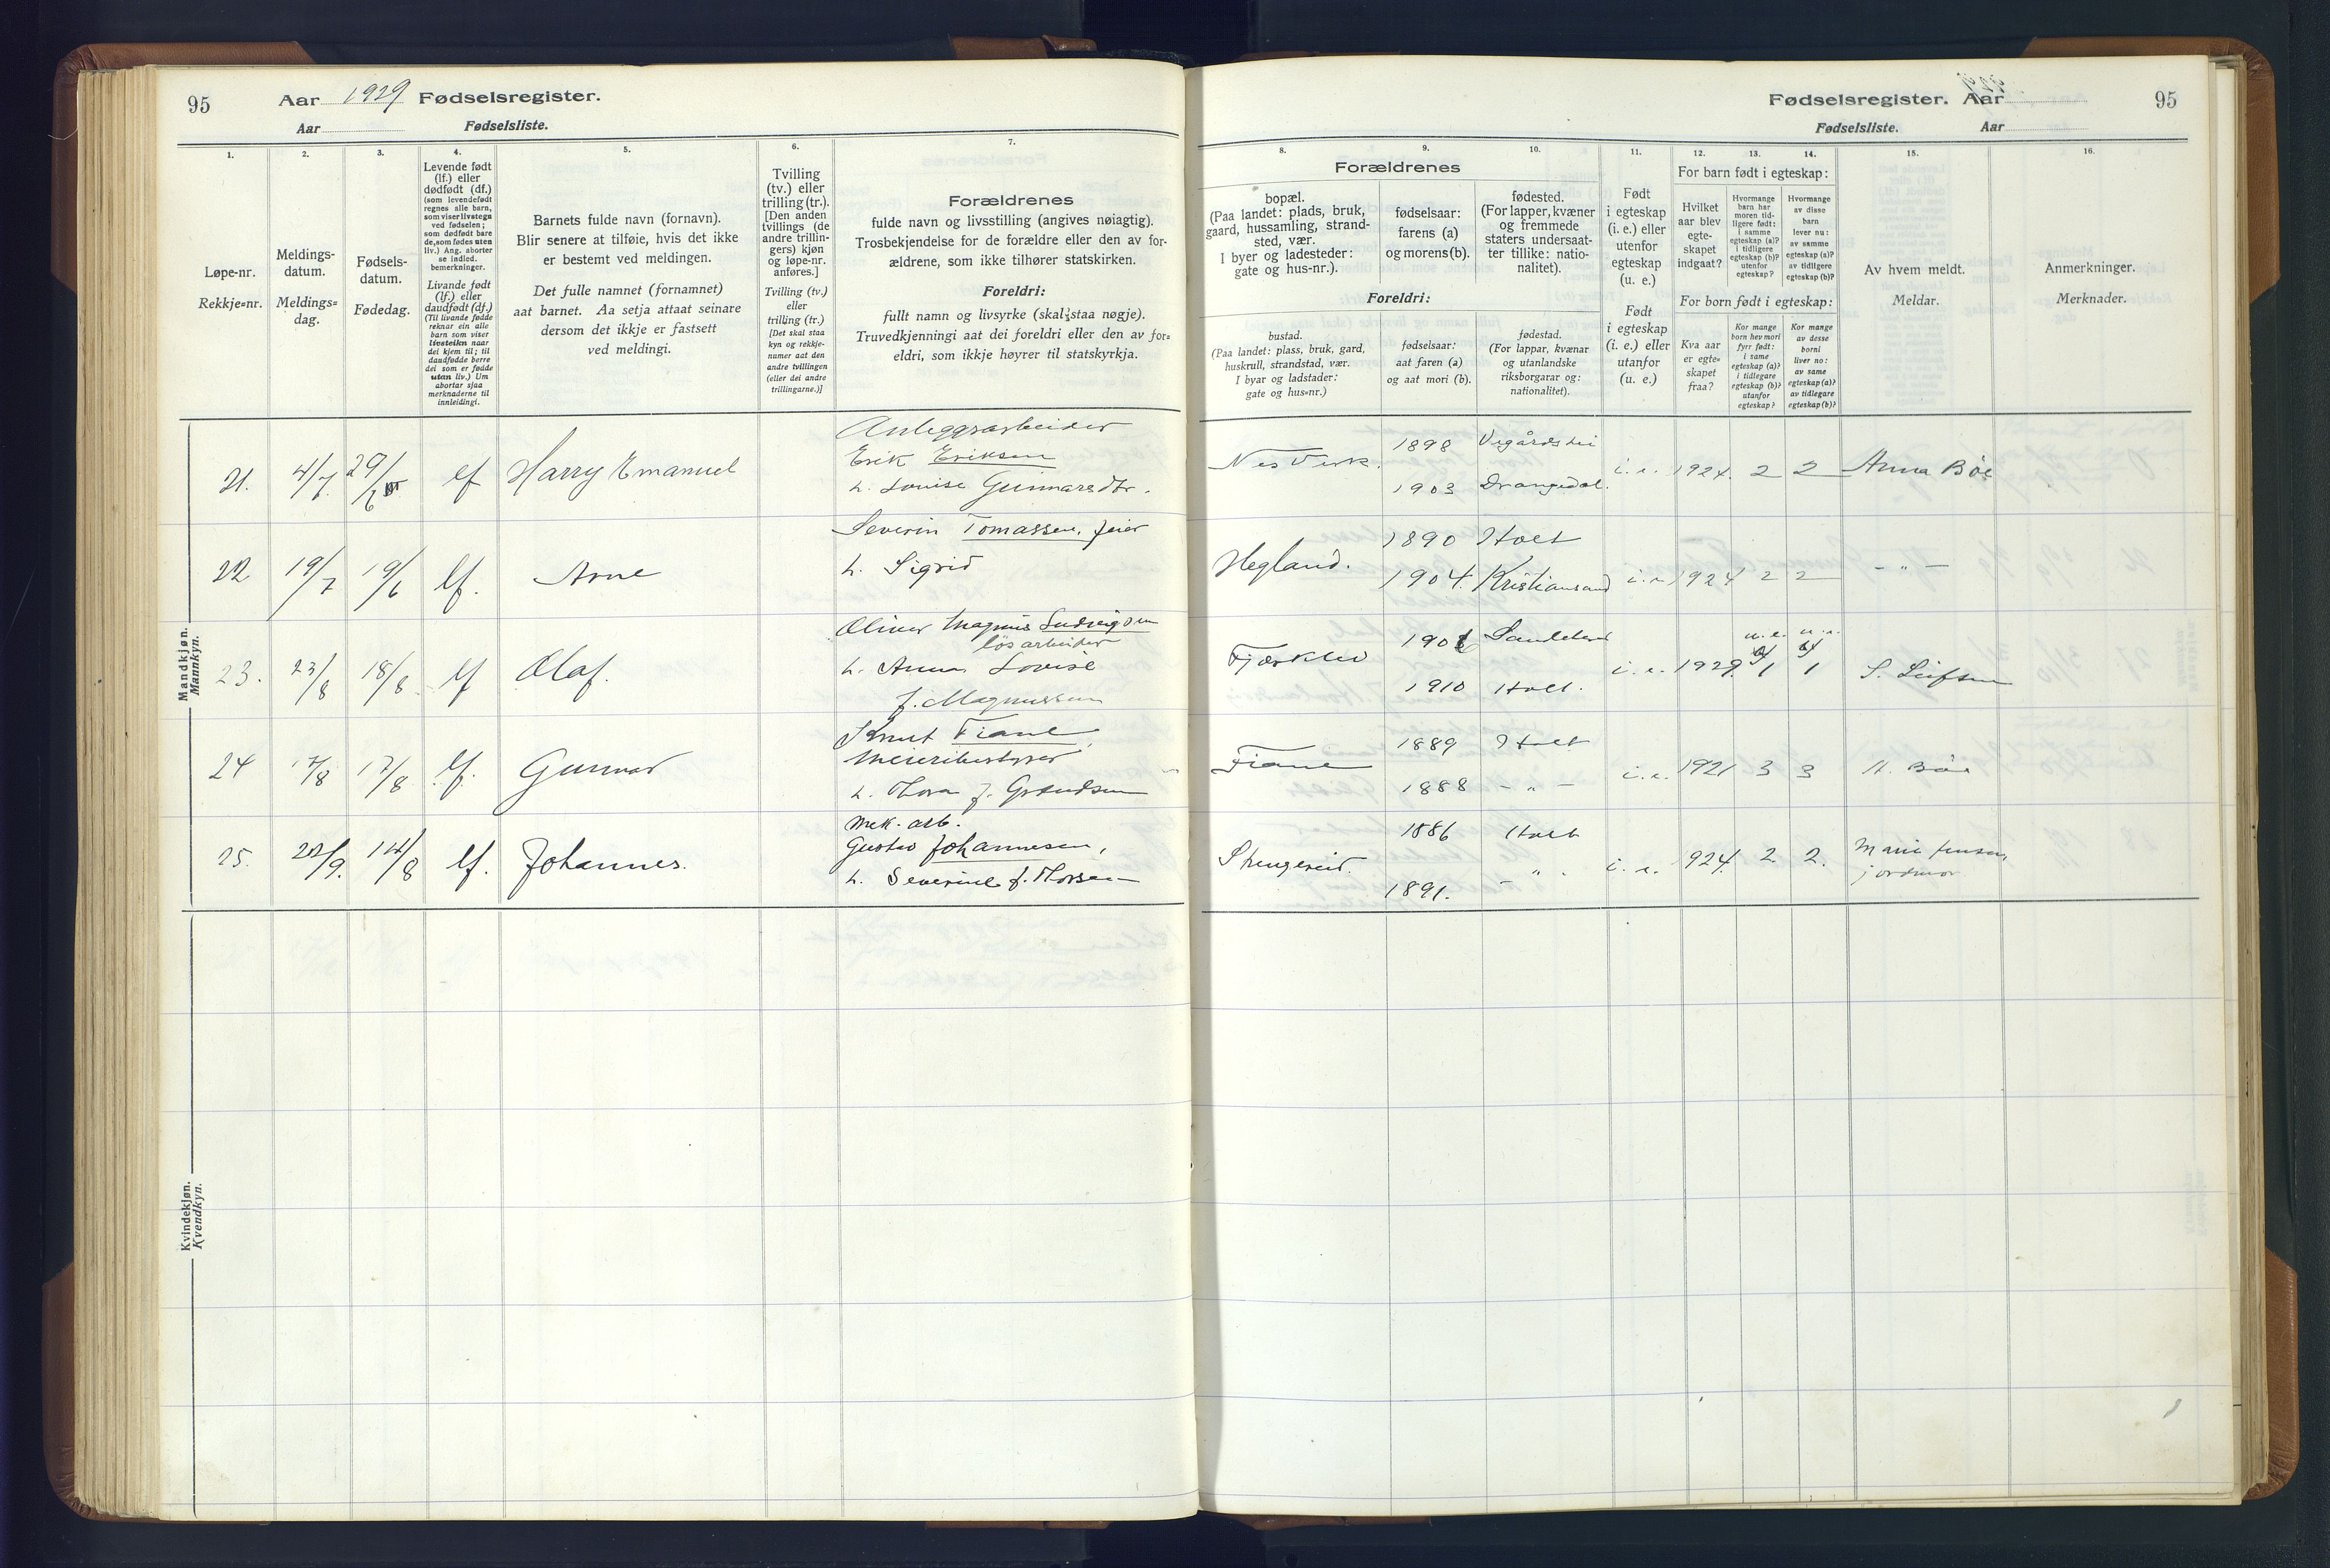 95 Aar 1929 Fødselsregister.
Aar Fødselsliste.
1. 2. 3. 4. 5. 6. 7.
Løpe-nr.
Rekkje=nr.
Meldings-
datum.
Meldings=
dag.
Fødsels-
datum.
Fødedag.
Levende født
(lf.) eller
dødfødt (df.)
(som levendefødt
regnes alle barn,
som viser livstegn
ved fødselen;
som dødfødt bare
de, som fødes uten
liv.) Ang. aborter
se indled.
bemerkninger.
Livande født
(lf.) eller
daudfødt (df.)
(Til livande fødde
reknar ein alle
barn som viser
livsteikn naar
dei kjem til; til
daudfødde berre
dei som er fødde
utan liv.) Um
abortar sjaa
merknaderne til
innleidingi.
Barnets fulde navn (fornavn).
Blir senere at tilføie, hvis det ikke
er bestemt ved meldingen.
Det fulle namnet (fornamnet)
aat barnet. Aa setja attaat seinare
dersom det ikkje er fastsett
ved meldingi.
Tvilling
(tv.) eller
trilling (tr.).
[Den anden
tvillings (de
andre trillin-
gers) kjøn
og løpe-nr.
anføres.]
Tvilling (tv.)
eller
trilling (tr.)
[Det skal staa
kyn og rekkje-
numer aat den
andre tvillingen
(eller dei andre
trillingarne.)]
Forældrenes
fulde navn og livsstilling (angives nøiagtig).
Trosbekjendelse for de forældre eller den av for-
ældrene, som ikke tilhører statskirken.
Foreldri:
fullt namn og livsyrke (skal staa nøgje).
Truvedkjenningi aat dei foreldri eller den av for=
eldri, som ikkje høyrer til statskyrkja.
Mandkjøn.
Mannkyn.
Anleggsarbeider
21. 4/7. 29/6 lf Harry Emanuel Erik Eriksen
h. Louise Gunnarsdtr.
Severin Tomassen, feier
22 19/7 19/6 lf. Arne h. Sigrid
Oliver Magnus Ludvigsen
løsarbeider
23. 23/8 18/8 lf Olaf. h. Anna Lovise
f. Magnussen
Knut Fiane,
24 17/8 17/8 lf. Gunnar Meieribestyrer
h. Thora f. Grundsen
Mek. arb.
25. 22/9. 14/8 lf. Johannes. Gustav Johannesen,
h. Severine f. Thorsen
Kvindekjøn.
Kvendkyn.
Fødselsregister. Aar 95
Fødselsliste. Aar
8. 9. 10. 11. 12. 13. 14. 15. 16.
Forældrenes
bopæl.
(Paa landet: plads, bruk,
gaard, hussamling, strand-
sted, vær.
I byer og ladesteder:
gate og hus-nr.).
fødselsaar:
farens (a)
og morens (b).
fødested.
(For lapper, kvæner
og fremmede
staters undersaat-
ter tillike: natio-
nalitet).
Foreldri:
bustad.
(Paa landet: plass, bruk, gard,
huskrull, strandstad, vær.
I byar og ladstader:
gate og hus=nr.)
fødselsaar:
aat faren (a)
og aat mori (b).
fødestad.
(For lappar, kvænar
og utanlandske
riksborgarar og:
nationalitet).
Født
i egteskap
(i. e.) eller
utenfor
egteskap
(u. e.)
Født
i egteskap
(i. e.) eller
utanfor
(u. e.)
For barn født i egteskap:
Hvilket
aar blev
egte-
skapet
indgaat?
Hvormange
barn har
moren tid-
ligere født:
i samme
egteskap (a)?
i tidligere
egteskap (b)?
utenfor
egteskap?
Hvormange
av disse
barn
lever nu:
av samme
egteskap (a)?
av tidligere
egteskap (b)?
For born født i egteskap:
Kva aar
er egte=
skapet
fraa?
Kor mange
born hev mori
fyrr født:
i same
egteskap (a)?
i tidlegare
egteskap (b)?
utanfor
egteskap?
Kor mange
av desse
borni
liver no:
av same
egteskap (a)?
av tidlegare
egteskap (b)?
Av hvem meldt.
Meldar.
Anmerkninger.
Merknader.
Nes Verk. 1898 Vegårdshei
1903 Drangedal. i. e. 1924. 2 2 Anna Böe
Hegland. 1890 Holt
1904. Kristiansand i. e. 1924 2 2 - " -
u. e. u. e.
1910 Holt. i. e. 1929. 1 1
Fiane 1889 Holt
1888 - " - i. e. 1921 3 3
1886 Holt
Strengereid. 1891. - " - i. e. 1924. 2. 2. Maria Jensen
jordmor